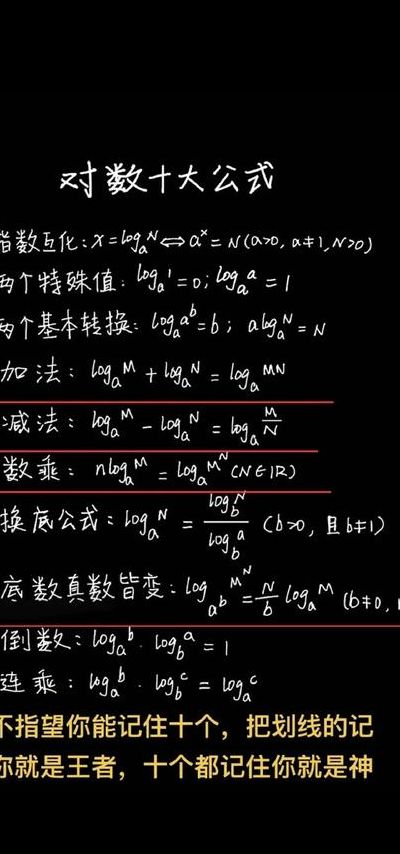 对数十大公式
指数互化: x=logₐN⇔aˣ=N(a>0, a≠1, N>0)
两个特殊值: logₐ1=0; logₐa=1
两个基本转换: logₐaᵇ=b; alogₐN=N
加法: logₐM+logₐN=logₐMN
减法: logₐM-logₐN=logₐM/N
数乘: nlogₐM=logₐMᴺ(N∈R)
换底公式: logₐN=log_b N/log_b a (b>0, 且b≠1)
底数真数皆变: log_{aᵇ}Mᴺ=N/b logₐM (b≠0,
倒数: logₐb·log_b a=1
连乘: logₐb·log_b c=logₐc
不指望你能记住十个，把划线的记
你就是王者，十个都记住你就是神